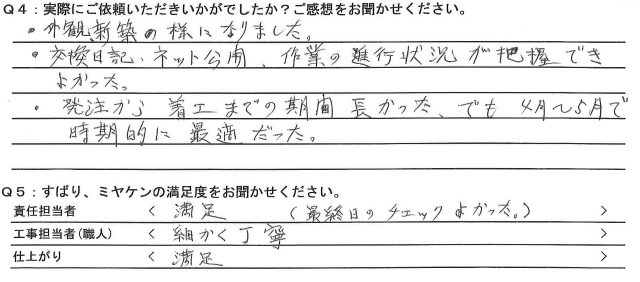 Q4：実際にご依頼いただきいかがでしたか？ご感想をお聞かせください。
・外観新築の様になりました。
・交換日記、ネット公開、作業の進行状況が把握でき
よかった。
・発注から着工までの期間長かった、でも4月～5月で
時期的に最適だった。
Q5：ずばり、ミヤケンの満足度をお聞かせください。
責任担当者 < 満足 （最終日のチェックよかった。） >
工事担当者（職人） < 細かく丁寧 >
仕上がり < 満足 >